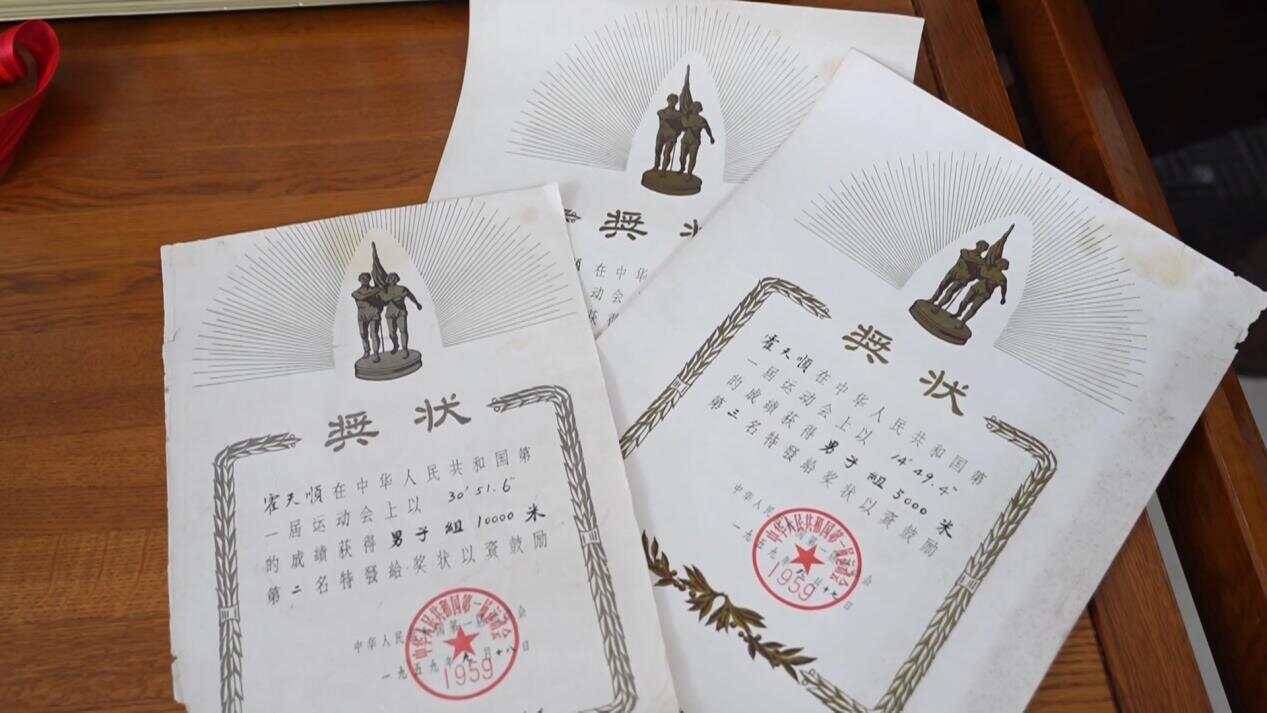 奖状
霍天順在中华人民共和国第
一届运动会上以 30′51.6″
的成績获得 男子組 10000 米
第二名特發給奖状以資鼓励
中华人民共和国第一届运动会
一九五九年 月十八日
中华人民共和国第一届运动会
1959
奖状
在中华
动会
获
奖状
霍天順在中华人民共和国第
一届运动会上以 14′49.4″
的成績获得 男子組 5000 米
第三名特發給奖状以資鼓励
中华人民 第一届 会
一九五九年 月十 日
中华人民共和国第一届运动会
1959